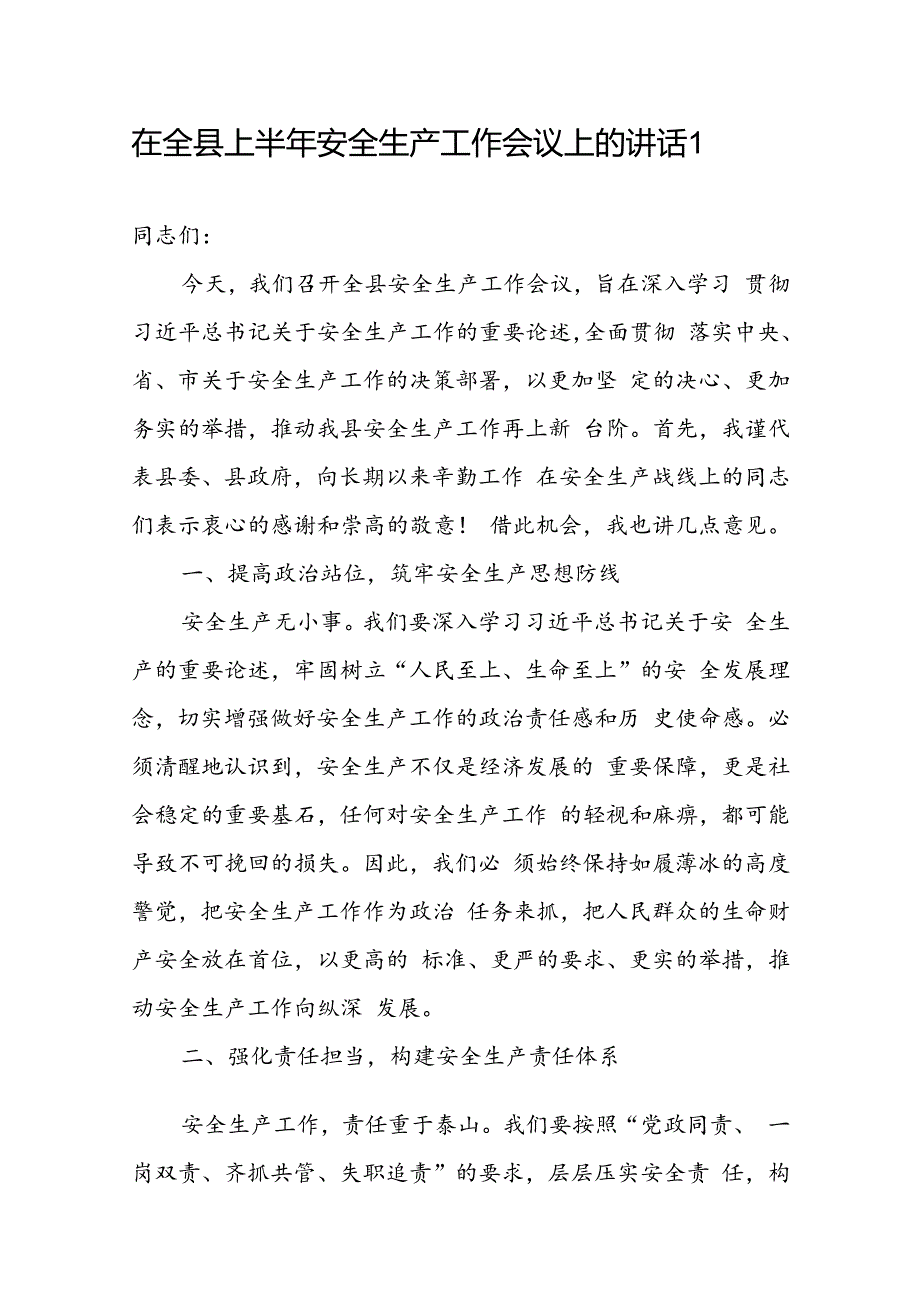 在全县上半年安全生产工作会议上的讲话1
同志们：
今天，我们召开全县安全生产工作会议，旨在深入学习 贯彻
习近平总书记关于安全生产工作的重要论述，全面贯彻 落实中央、
省、市关于安全生产工作的决策部署，以更加坚 定的决心、更加
务实的举措，推动我县安全生产工作再上新 台阶。首先，我谨代
表县委、县政府，向长期以来辛勤工作 在安全生产战线上的同志
们表示衷心的感谢和崇高的敬意！ 借此机会，我也讲几点意见。
一、提高政治站位，筑牢安全生产思想防线
安全生产无小事。我们要深入学习习近平总书记关于安 全生
产的重要论述，牢固树立“人民至上、生命至上”的安 全发展理
念，切实增强做好安全生产工作的政治责任感和历 史使命感。必
须清醒地认识到，安全生产不仅是经济发展的 重要保障，更是社
会稳定的重要基石，任何对安全生产工作 的轻视和麻痹，都可能
导致不可挽回的损失。因此，我们必 须始终保持如履薄冰的高度
警觉，把安全生产工作作为政治 任务来抓，把人民群众的生命财
产安全放在首位，以更高的 标准、更严的要求、更实的举措，推
动安全生产工作向纵深 发展。
二、强化责任担当，构建安全生产责任体系
安全生产工作，责任重于泰山。我们要按照“党政同责、 一
岗双责、齐抓共管、失职追责”的要求，层层压实安全责 任，构